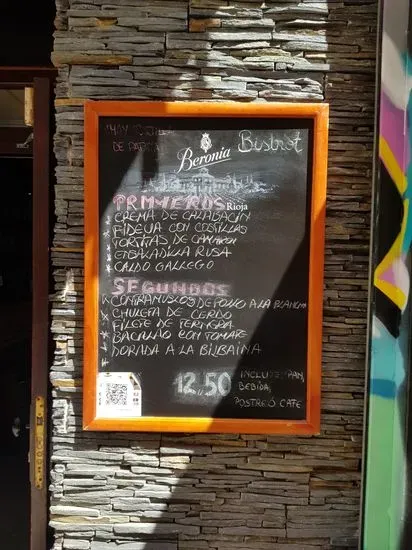 HAY
DE PAPA
Beronia
Bistrot
PRIMEROS
Rioja
CREMA DE CALABACIN
FIDEUA CON COSTILLAS
TORTITAS DE CAMARON
ENSALADILLA RUSA
CALDO GALLEGO
SEGUNDOS
CONTRAMUSLOS DE POLLO A LA
CHULETA DE CERDO
FILETE DE TERNERA
BACALAO CON TOMATE
DORADA A LA BILBAINA
12,50
INCLUYE PAN,
BEBIDA,
POSTRE O CAFE